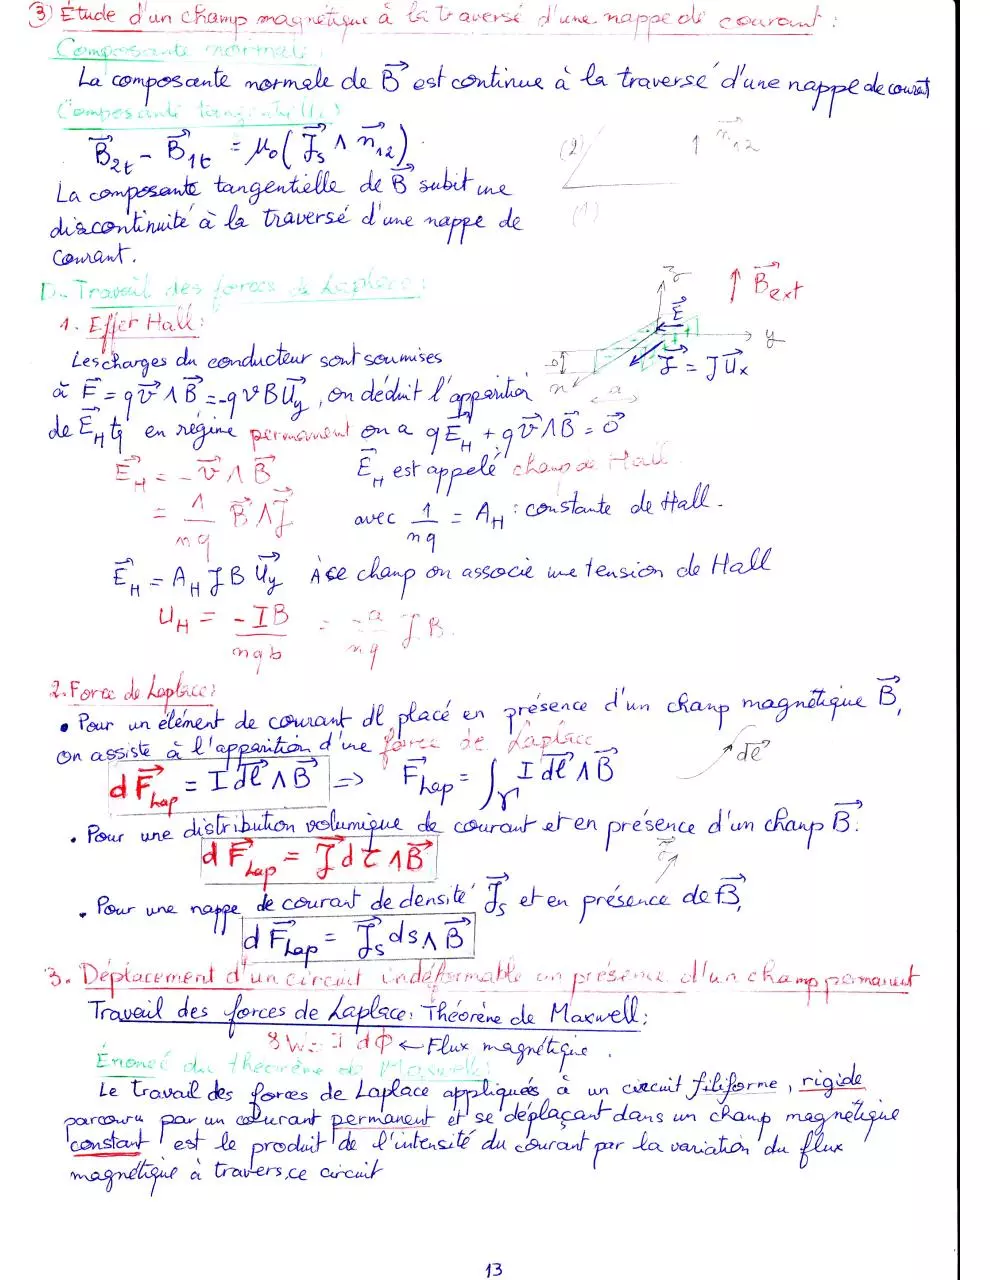 ③ Étude d'un champ magnétique à la traversé d'une nappe de courant :
Composante normale :
La composante normale de B⃗ est continue à la traversé d'une nappe de courant
Composante tangentielle
B⃗2t - B⃗1t = μ0 ( J⃗s ∧ n⃗12 )
(2) ↑ n⃗12
La composante tangentielle de B⃗ subit une
(1)
discontinuité à la traversé d'une nappe de
courant.
D. Travail des forces de Laplace :
↑ B⃗ext
1. Effet Hall :
E⃗
y
Les charges du conducteur sont soumises
b x a
J⃗ = J U⃗x
à F⃗ = q v⃗ ∧ B⃗ = -q v B U⃗y, on déduit l'apparition
de E⃗H tq en régime permanent on a q E⃗H + q v⃗ ∧ B⃗ = 0⃗
E⃗H = - v⃗ ∧ B⃗ E⃗H est appelé champ de Hall.
= 1/nq B⃗ ∧ J⃗ avec 1/nq = AH : constante de Hall.
E⃗H = AH J B U⃗y À ce champ on associe une tension de Hall
UH = -IB/nqb = -a/nq J B.
2. Force de Laplace :
• Pour un élément de courant dl placé en présence d'un champ magnétique B⃗,
on assiste à l'apparition d'une force de Laplace
dl⃗
dF⃗Lap = I dl⃗ ∧ B⃗ => F⃗Lap = ∫Γ I dl⃗ ∧ B⃗
• Pour une distribution volumique de courant et en présence d'un champ B⃗ :
dF⃗Lap = J⃗ dτ ∧ B⃗
• Pour une nappe de courant de densité J⃗s et en présence de B⃗,
dF⃗Lap = J⃗s ds ∧ B⃗
3. Déplacement d'un circuit indéformable en présence d'un champ permanent
Travail des forces de Laplace : Théorène de Maxwell :
δW = I dΦ ← Flux magnétique.
Énoncé du théorème de Maxwell :
Le travail des forces de Laplace appliqués à un circuit filiforme, rigide
parcouru par un courant permanent et se déplaçant dans un champ magnétique
constant est le produit de l'intensité du courant par la variation du flux
magnétique à travers ce circuit
13